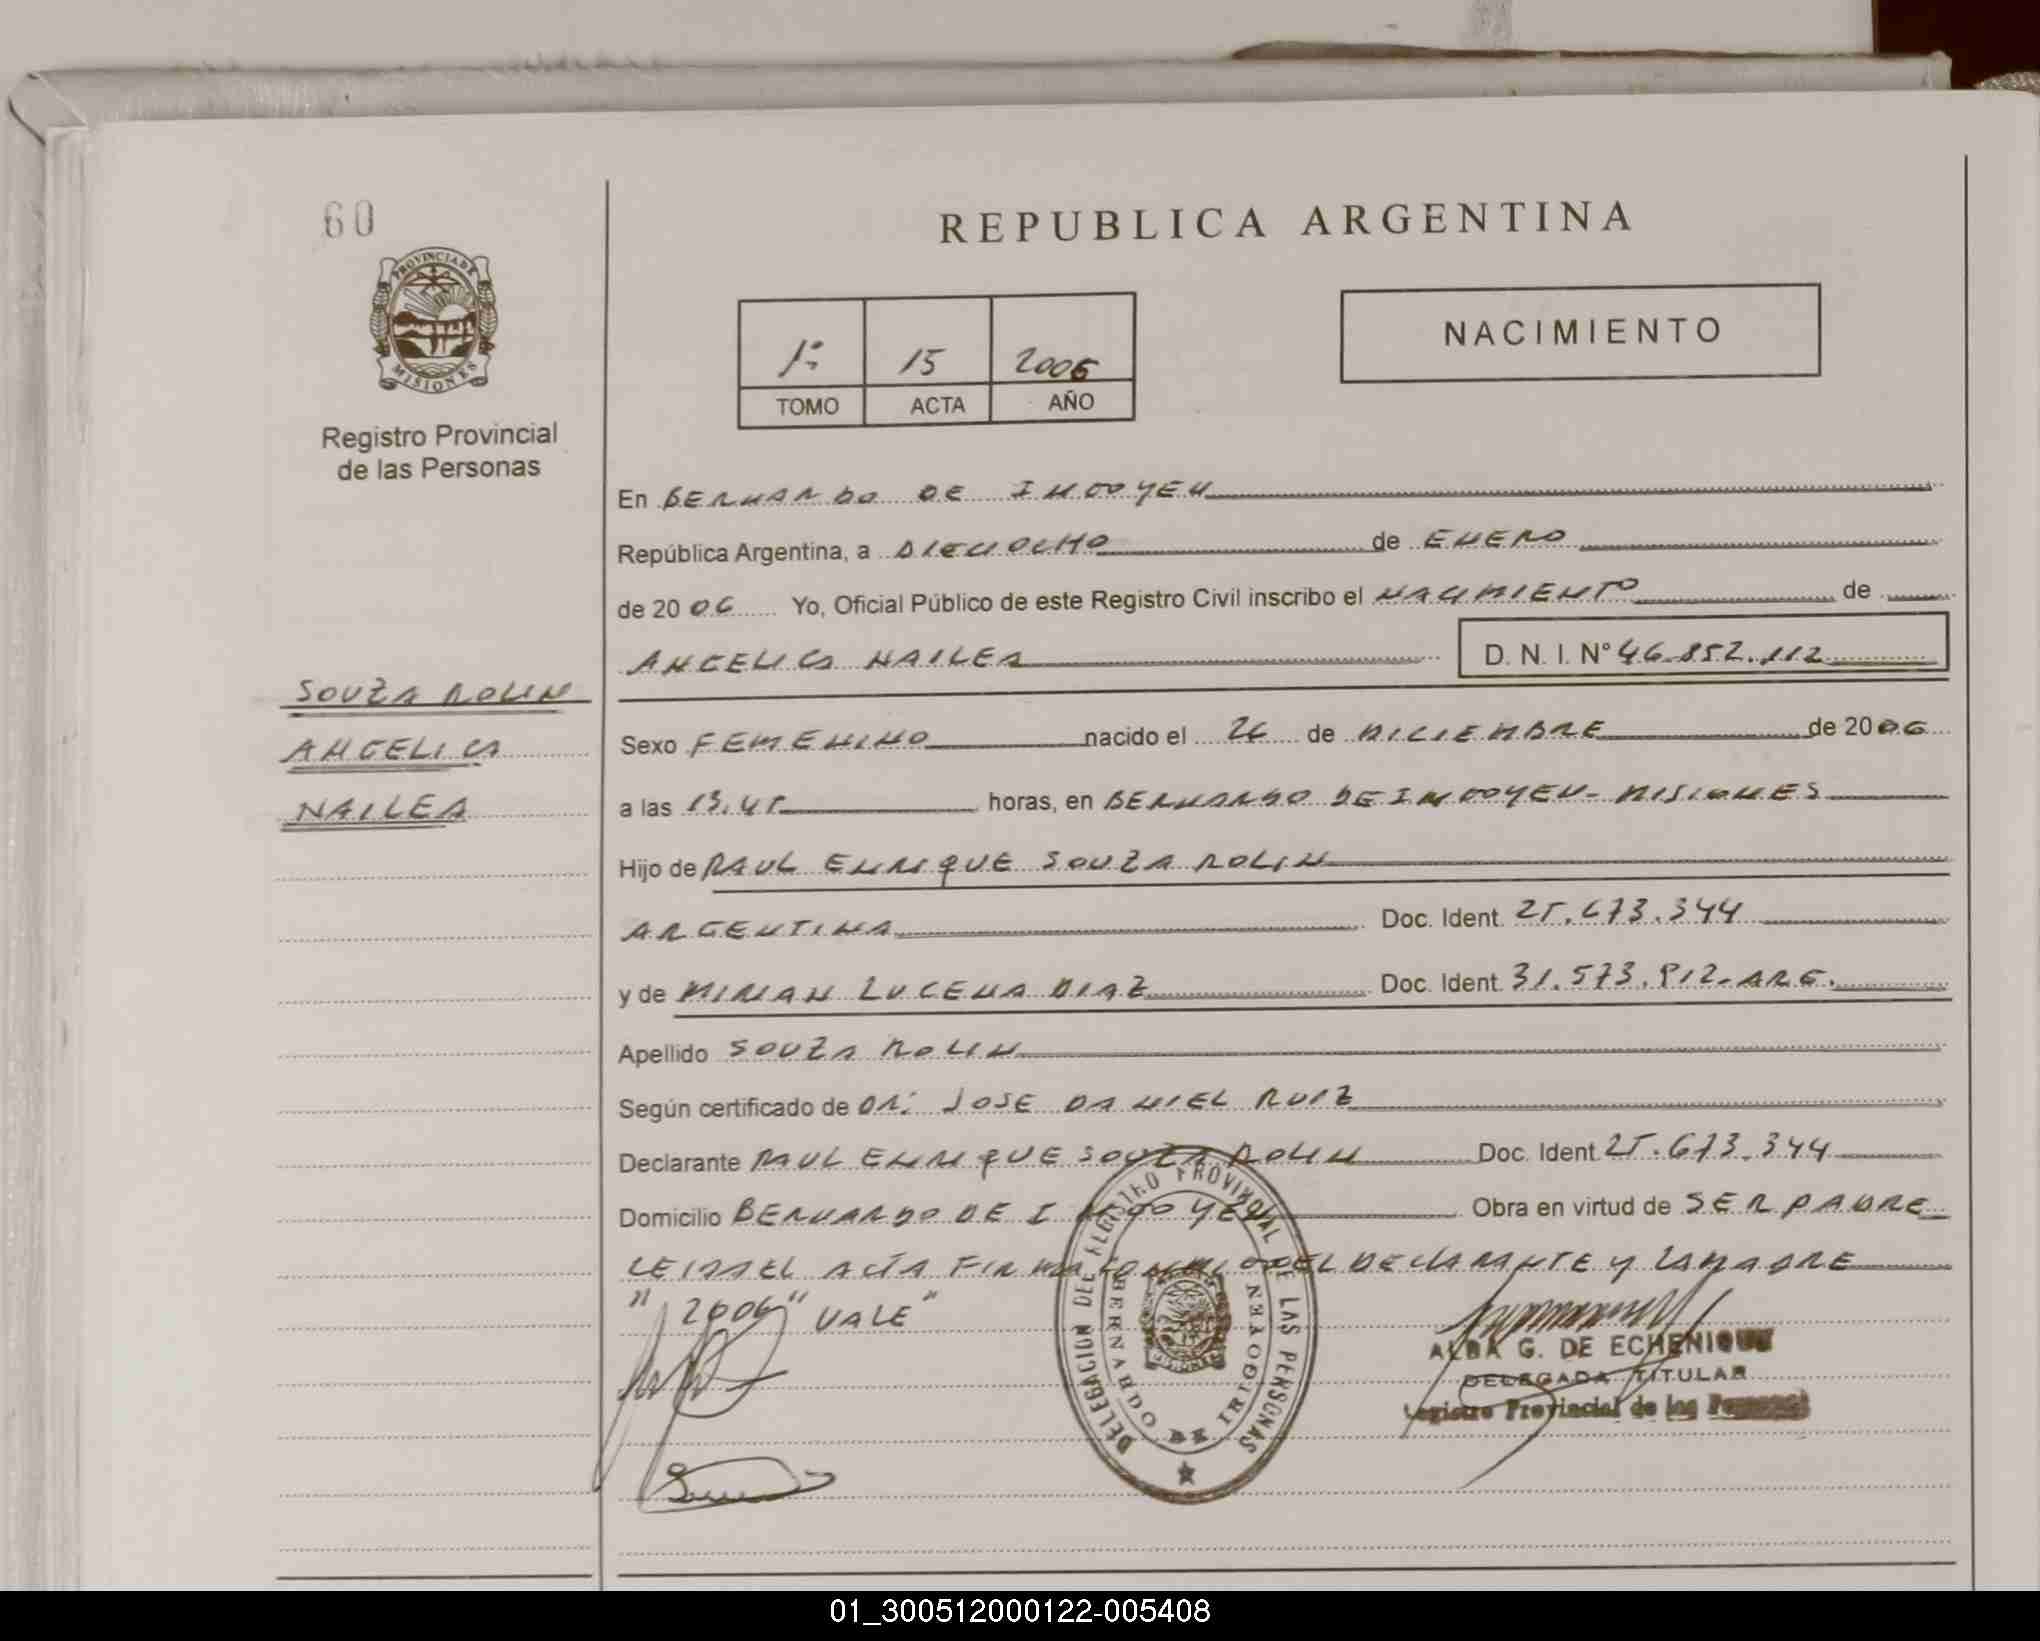 60
REPUBLICA ARGENTINA
PROVINCIA DE
MISIONES
Registro Provincial
de las Personas
1º 15 2006
TOMO ACTA AÑO
NACIMIENTO
En BERNARDO DE IRIGOYEN
República Argentina, a DIECIOCHO de ENERO
de 2006 Yo, Oficial Público de este Registro Civil inscribo el NACIMIENTO de
ANGELICA NAILEA D. N. I. N° 46.852.112
SOUZA ROLIN
ANGELICA
NAILEA
Sexo FEMENINO nacido el 26 de DICIEMBRE de 2006
a las 13,45 horas, en BERNARDO DE IRIGOYEN - MISIONES
Hijo de RAUL ENRIQUE SOUZA ROLIN
ARGENTINA Doc. Ident. 25.673.344
y de MIRIAN LUCENA DIAZ Doc. Ident. 31.573.912 - ARG.
Apellido SOUZA ROLIN
Según certificado de DR: JOSE DANIEL RUIZ
Declarante RAUL ENRIQUE SOUZA ROLIN Doc. Ident 25.673.344
Domicilio BERNARDO DE IRIGOYEN Obra en virtud de SER PADRE
LEIDA EL ACTA FIRMA CONMIGO EL DECLARANTE Y LA MADRE
"2006" VALE"
DELEGACION DEL REGISTRO PROVINCIAL DE LAS PERSONAS
BERNARDO DE IRIGOYEN
ALBA G. DE ECHENIQUE
DELEGADA TITULAR
Registro Provincial de las Personas
01_300512000122-005408